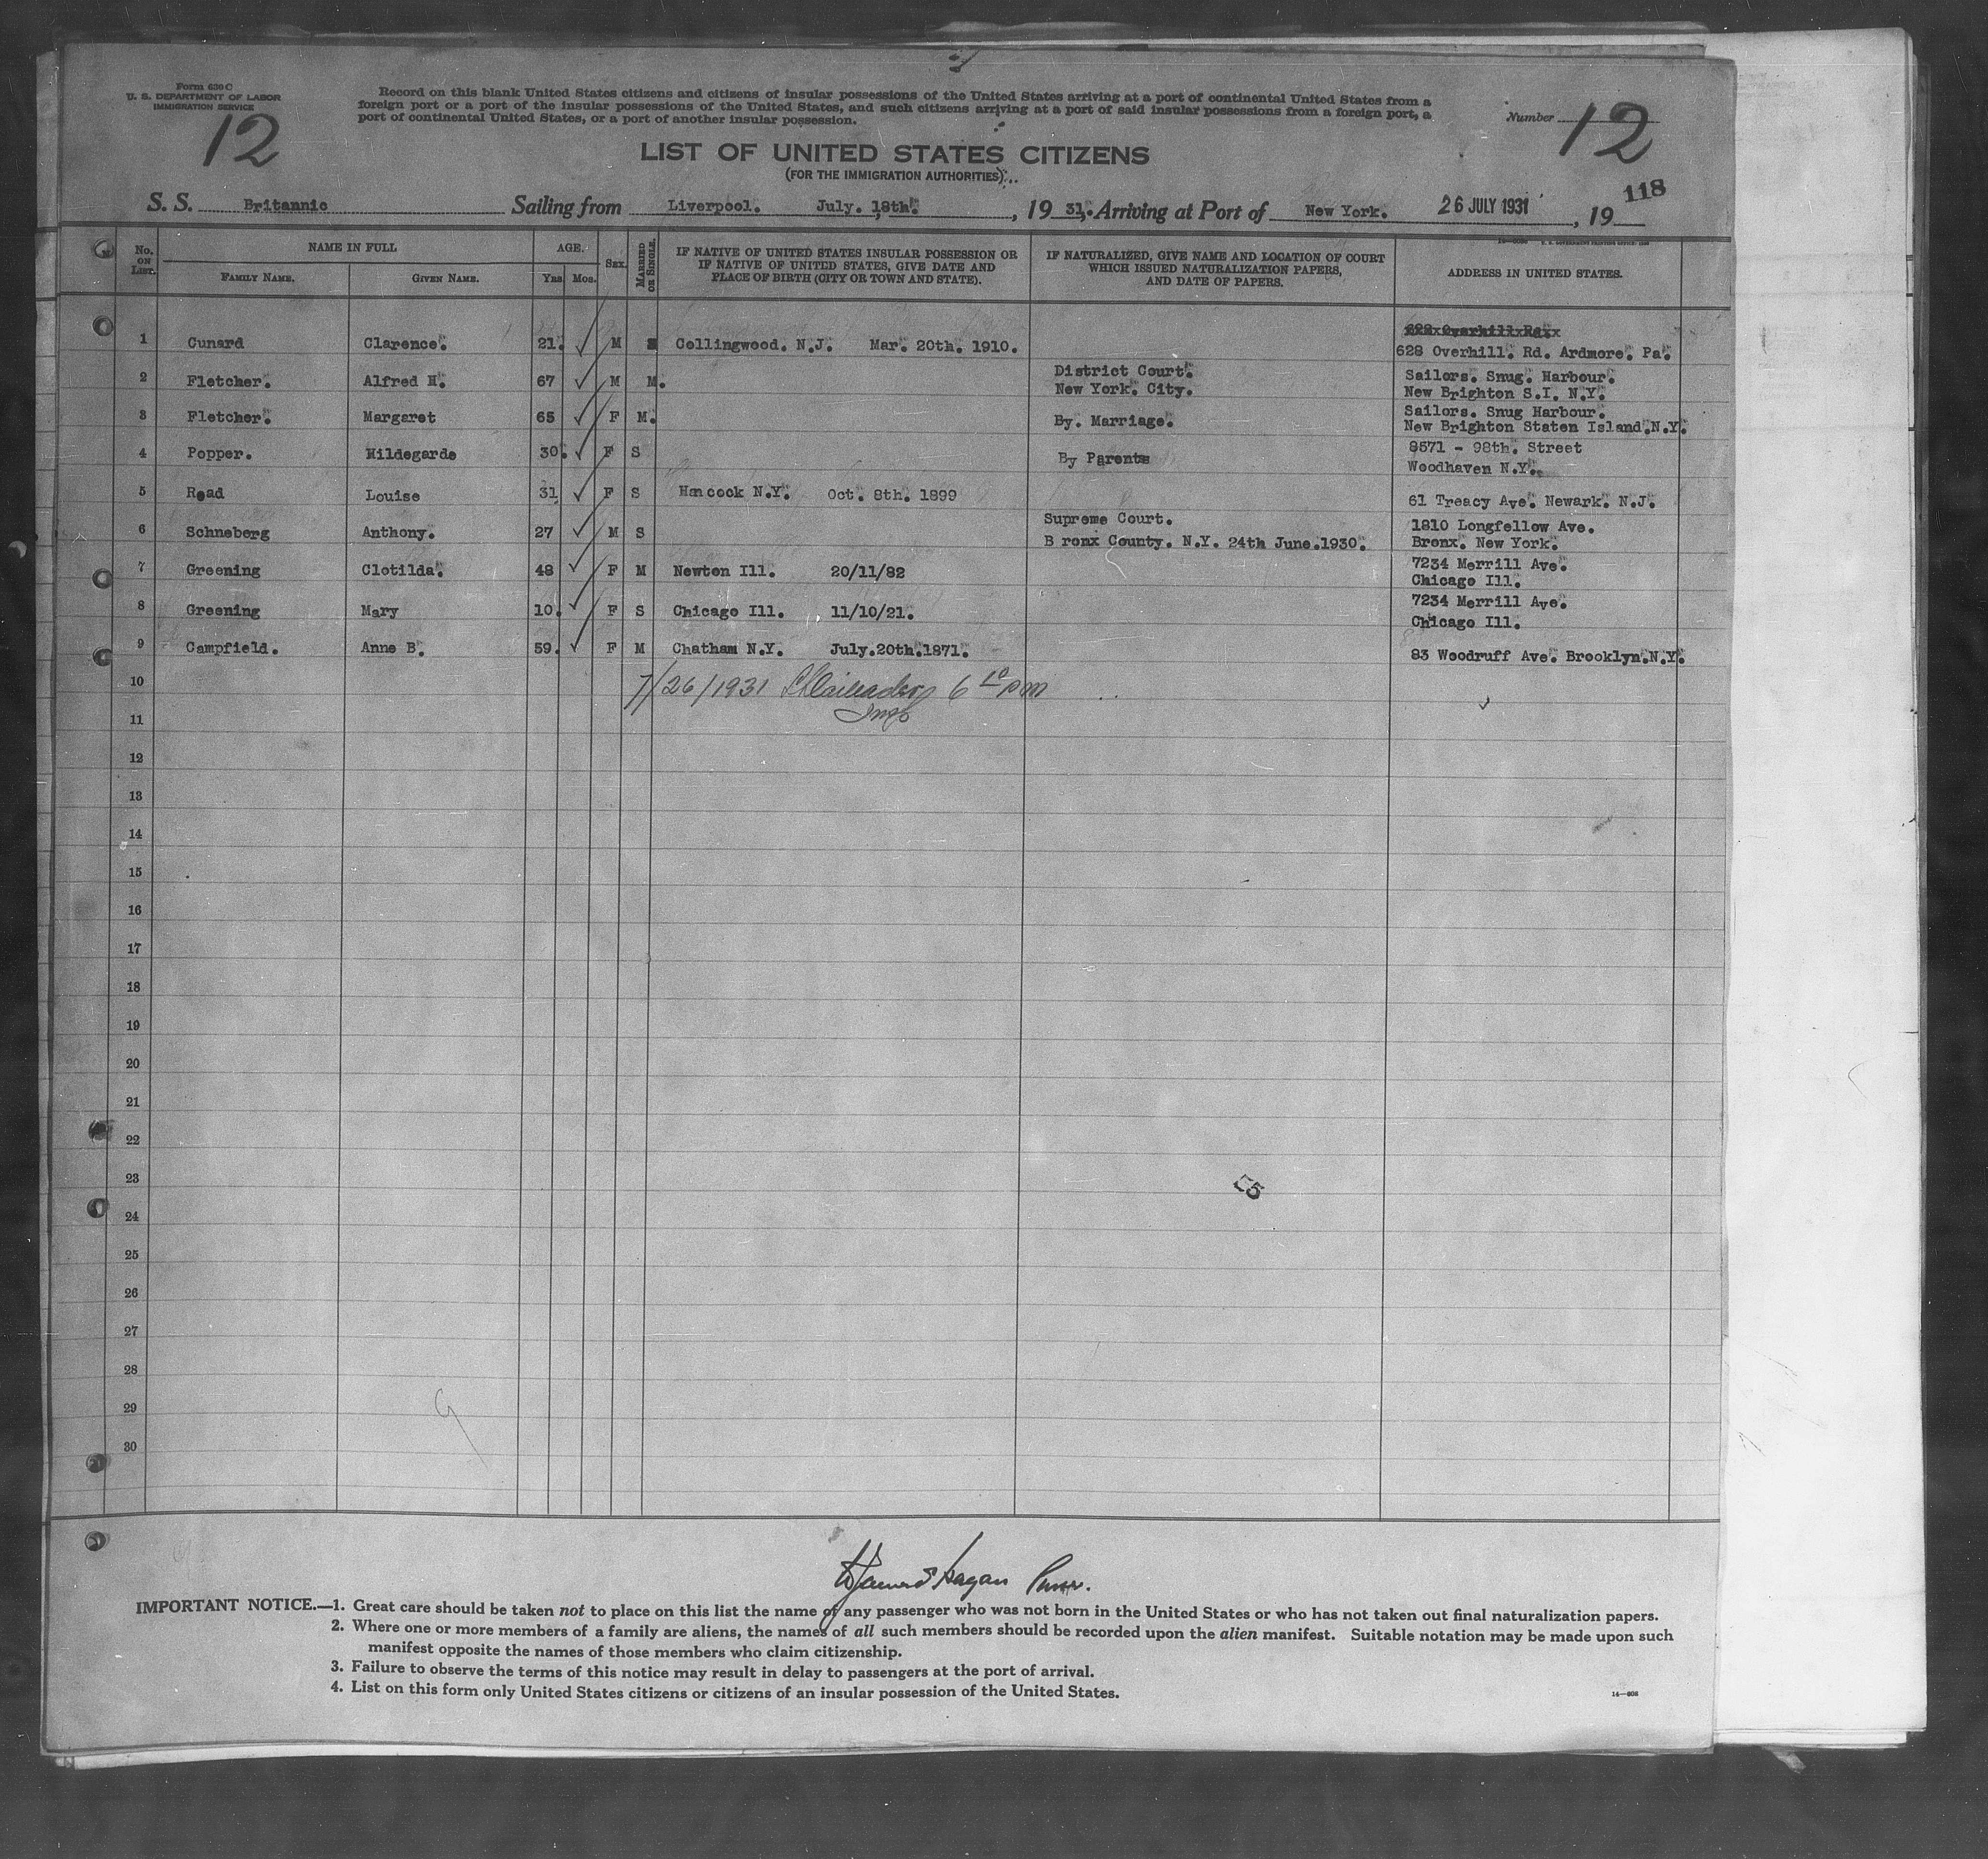 Form 630 C
U. S. DEPARTMENT OF LABOR
IMMIGRATION SERVICE
12
Record on this blank United States citizens and citizens of insular possessions of the United States arriving at a port of continental United States from a
foreign port or a port of the insular possessions of the United States, and such citizens arriving at a port of said insular possessions from a foreign port, a
port of continental United States, or a port of another insular possession.
Number 12
LIST OF UNITED STATES CITIZENS
(FOR THE IMMIGRATION AUTHORITIES)
118
S. S. Britannic Sailing from Liverpool. July. 18th. , 19 31. Arriving at Port of New York. 26 JULY 1931 , 19
No. ON LIST. NAME IN FULL AGE. SEX. MARRIED OR SINGLE. IF NATIVE OF UNITED STATES INSULAR POSSESSION OR IF NATIVE OF UNITED STATES, GIVE DATE AND PLACE OF BIRTH (CITY OR TOWN AND STATE). IF NATURALIZED, GIVE NAME AND LOCATION OF COURT WHICH ISSUED NATURALIZATION PAPERS, AND DATE OF PAPERS. ADDRESS IN UNITED STATES.
FAMILY NAME. GIVEN NAME. Yrs. Mos.
628 Overhill Rd.
1 Cunard Clarence. 21. M S Collingwood. N.J. Mar. 20th. 1910. 628 Overhill. Rd. Ardmore. Pa.
2 Fletcher. Alfred H. 67 M M. District Court. New York. City. Sailors. Snug. Harbour. New Brighton S.I. N.Y.
3 Fletcher. Margaret 65 F M. By. Marriage. Sailors. Snug Harbour. New Brighton Staten Island.N.Y.
4 Popper. Hildegarde 30. F S By Parents 8571 - 98th. Street Woodhaven N.Y.
5 Read Louise 31 F S Hancook N.Y. Oct. 8th. 1899 61 Treacy Ave. Newark. N.J.
6 Schneberg Anthony. 27 M S Supreme Court. B ronx County. N.Y. 24th June.1930. 1810 Longfellow Ave. Bronx. New York.
7 Greening Clotilda. 48 F M Newton Ill. 20/11/82 7234 Merrill Ave. Chicago Ill.
8 Greening Mary 10. F S Chicago Ill. 11/10/21. 7234 Merrill Ave. Chicago Ill.
9 Campfield. Anne B. 59. F M Chatham N.Y. July.20th.1871. 83 Woodruff Ave. Brooklyn.N.Y.
10 7/26/1931 6 10 pm
11
12
13
14
15
16
17
18
19
20
21
22
23
24
25
26
27
28
29
30
Purser.
IMPORTANT NOTICE.—1. Great care should be taken not to place on this list the name of any passenger who was not born in the United States or who has not taken out final naturalization papers.
2. Where one or more members of a family are aliens, the names of all such members should be recorded upon the alien manifest. Suitable notation may be made upon such
manifest opposite the names of those members who claim citizenship.
3. Failure to observe the terms of this notice may result in delay to passengers at the port of arrival.
4. List on this form only United States citizens or citizens of an insular possession of the United States.
14—608